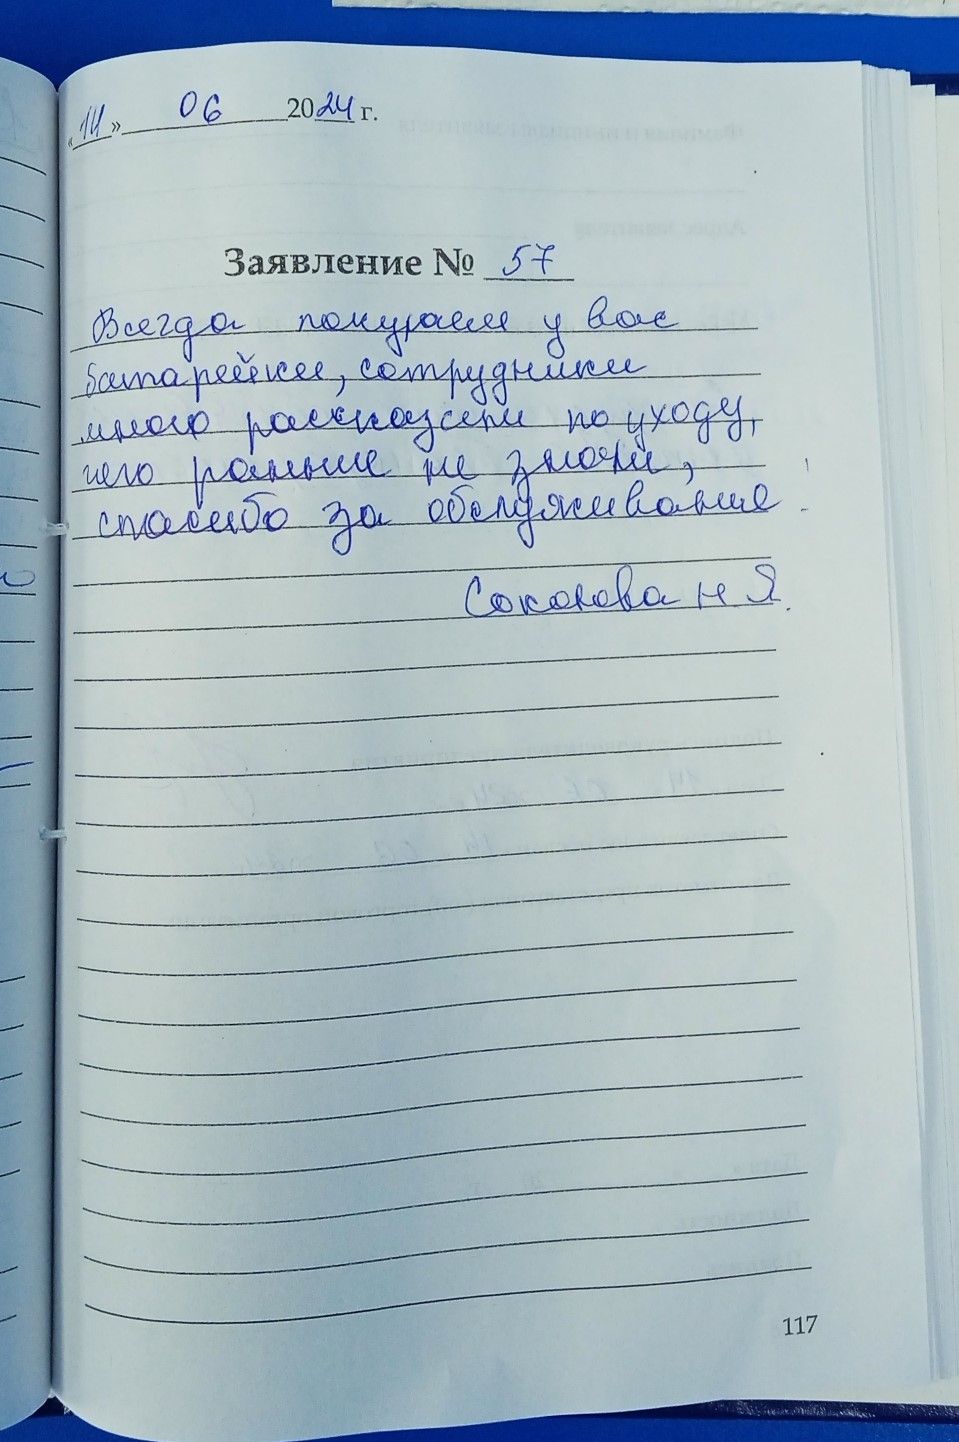 «14» 06 2024 г.
Заявление № 57
Всегда покупаем у вас
батарейки, сотрудники
много рассказали по уходу,
чего раньше не знали,
спасибо за обслуживание
Соколова Н Я.
117